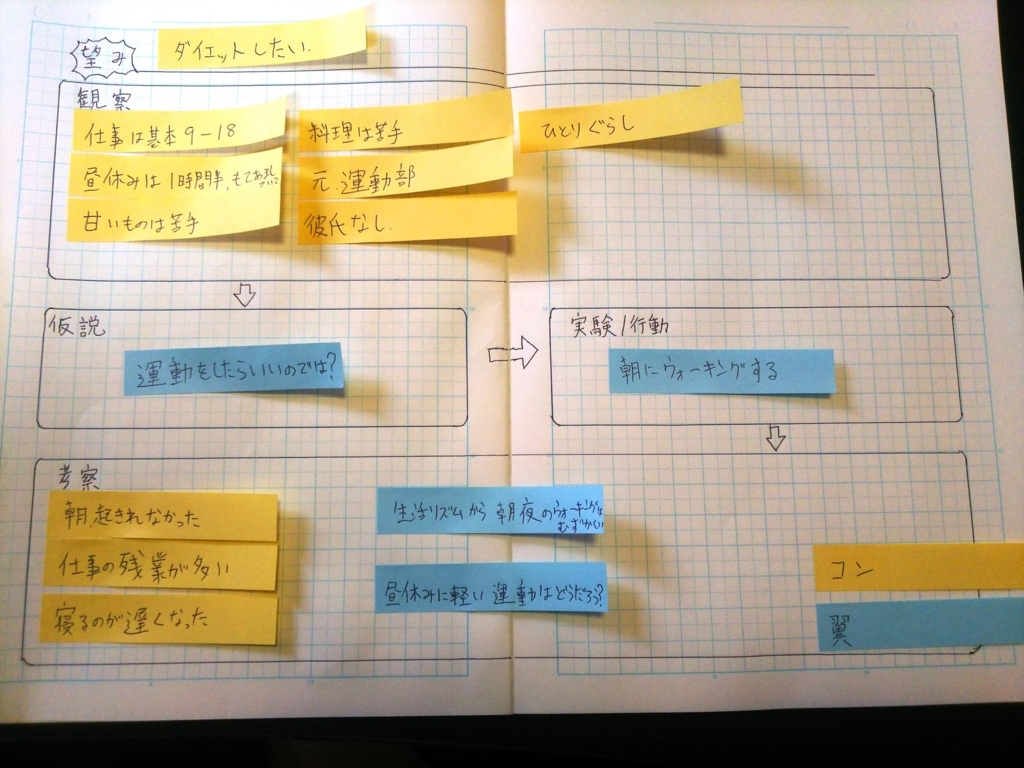 望み
ダイエットしたい.
観察
仕事は基本9-18
料理は苦手
ひとりぐらし
昼休みは1時間半,もてあます
元.運動部
甘いものは苦手
彼氏なし.
仮説
運動をしたらいいのでは?
実験/行動
朝にウォーキングする
考察
朝,起きれなかった
仕事の残業が多い
寝るのが遅くなった
生活リズムから朝夜のウォーキングは
むずかしい
昼休みに軽い運動はどうだろう?
コン
翼